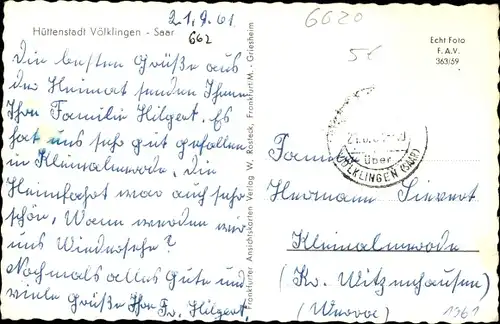 21.9.61
662
6620
5€
Hüttenstadt Völklingen - Saar
Echt Foto
F. A. V.
363/59
Die besten Grüße aus
der Heimat senden Ihnen
Ihre Familie Hilgert. Es
hat uns sehr gut gefallen
in Kleinalmerode. Die
Heimfahrt war auch sehr
schön, Wann werden wir
uns Wiedersehe?
Nochmals alles Gute und
viele Grüße Ihre Fr. Hilgert.
Frankfurter Ansichtskarten Verlag W. R. Rosteck, Frankfurt/M. - Griesheim
über
VÖLKLINGEN (SAAR)
Hermann Sievert
Kleinalmerode
(Kr. Witzenhausen)
(Werra)
1961